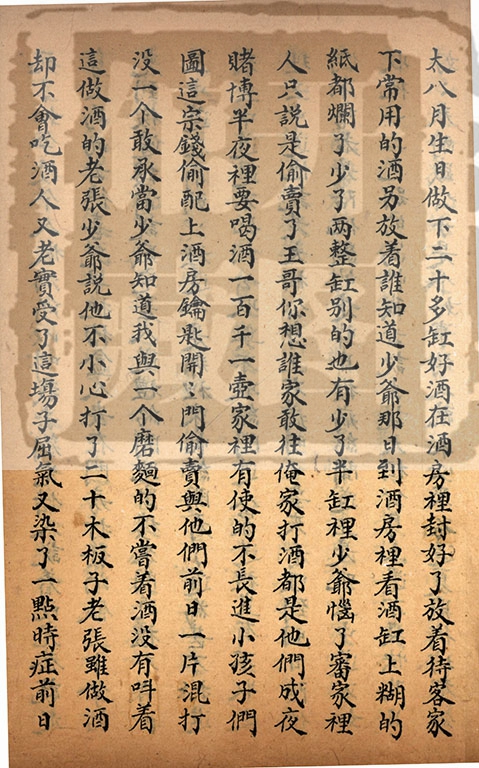 太八月生日做下二十多缸好酒在酒房裡封好了放着待客家
下常用的酒另放着誰知道少爺那日到酒房裡看酒缸上糊的
紙都爛了少了两整缸别的也有少了半缸裡少爺惱了審家裡
人只說是偷賣了王哥你想誰家敢往俺家打酒都是他們成夜
賭博半夜裡要喝酒一百千一壺家裡有使的不長進小孩子們
圖這宗錢偷配上酒房鑰匙開〻門偷賣與他們前日一片混打
没一个敢承當少爺知道我與一个磨麵的不嘗着酒没有呌着
這做酒的老張少爺説他不小心打了二十木板子老張雖做酒
却不會吃酒人又老實受了這塲子屈氣又染了一點時症前日